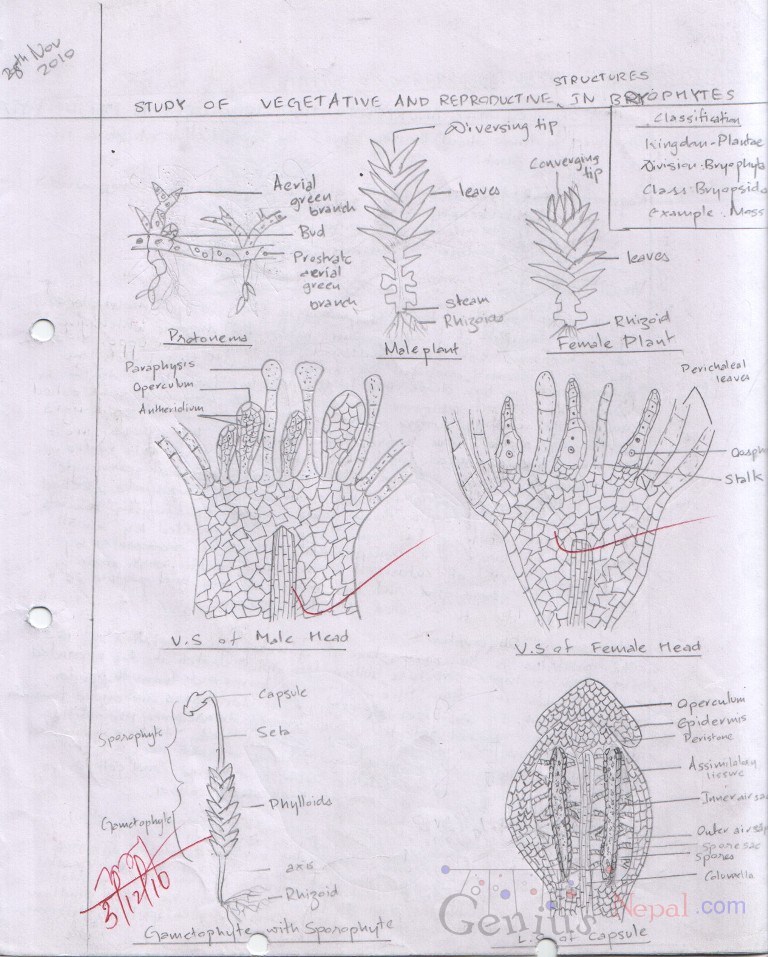 Nov
2010
STRUCTURES
STUDY OF VEGETATIVE AND REPRODUCTIVE IN BRYOPHYTES
Classification
Kingdom-Plantae
Division-Bryophyta
Class-Bryopsida
Example. Moss
Aerial
green
branch
Bud
Prostrate
aerial
green
branch
Protonema
Diversing tip
leaves
steam
Rhizoids
Male plant
Converging
tip
leaves
Rhizoid
Female Plant
Paraphysis
Operculum
Antheridium
V.S of Male Head
Perichaleal
leaves
Oosph
Stalk
V.S of Female Head
Capsule
Sporophyte
Seta
Gametophyte
Phylloids
axis
Rhizoid
Gametophyte with Sporophyte
3/12/10
Operculum
Epidermis
Peristone
Assimilatory
tissue
Inner air sa
Outer air sp
Spore sac
Spores
Columella
L.S of Capsule
Genius Nepal.com